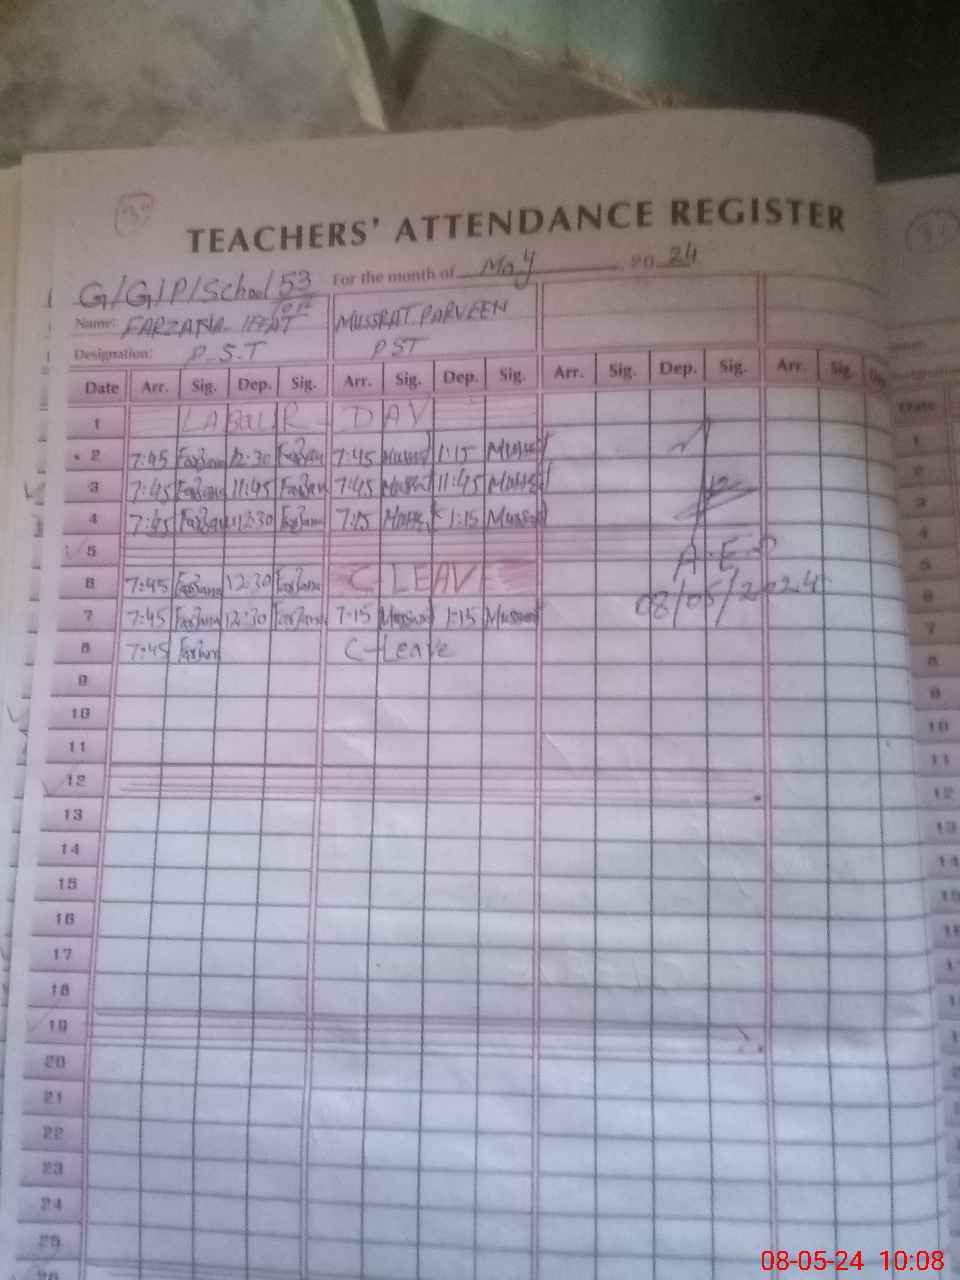 TEACHERS' ATTENDANCE REGISTER
G/G/P/School 53
For the month of May 2024
Name: FARZANA IFFAT MUSSRAT PARVEEN
Designation: P.S.T PST
Date Arr. Sig. Dep. Sig. Arr. Sig. Dep. Sig. Arr. Sig. Dep. Sig. Arr. Sig.
1 LABOUR DAY
2 7:45 Farzana 12:30 Farzana 7:45 Mussrat 1:15
3 7:45 Farzana 11:45 Farzana 7:45 Mussrat 11:45
4 7:45 Farzana 12:30 Farzana 7:15 1:15 Mussrat
5
A.E.O
6 7:45 Farzana 12:30 Farzana C-LEAVE
08/05/2024
7 7:45 Farzana 12:30 Farzana 7-15 Mussrat 1:15 Mussrat
8 7:45 Farzana C-Leave
9
10
11
12
13
14
15
16
17
18
19
20
21
22
23
24
25
26
Date
1
2
3
4
5
6
7
8
9
10
11
12
13
14
08-05-24 10:08